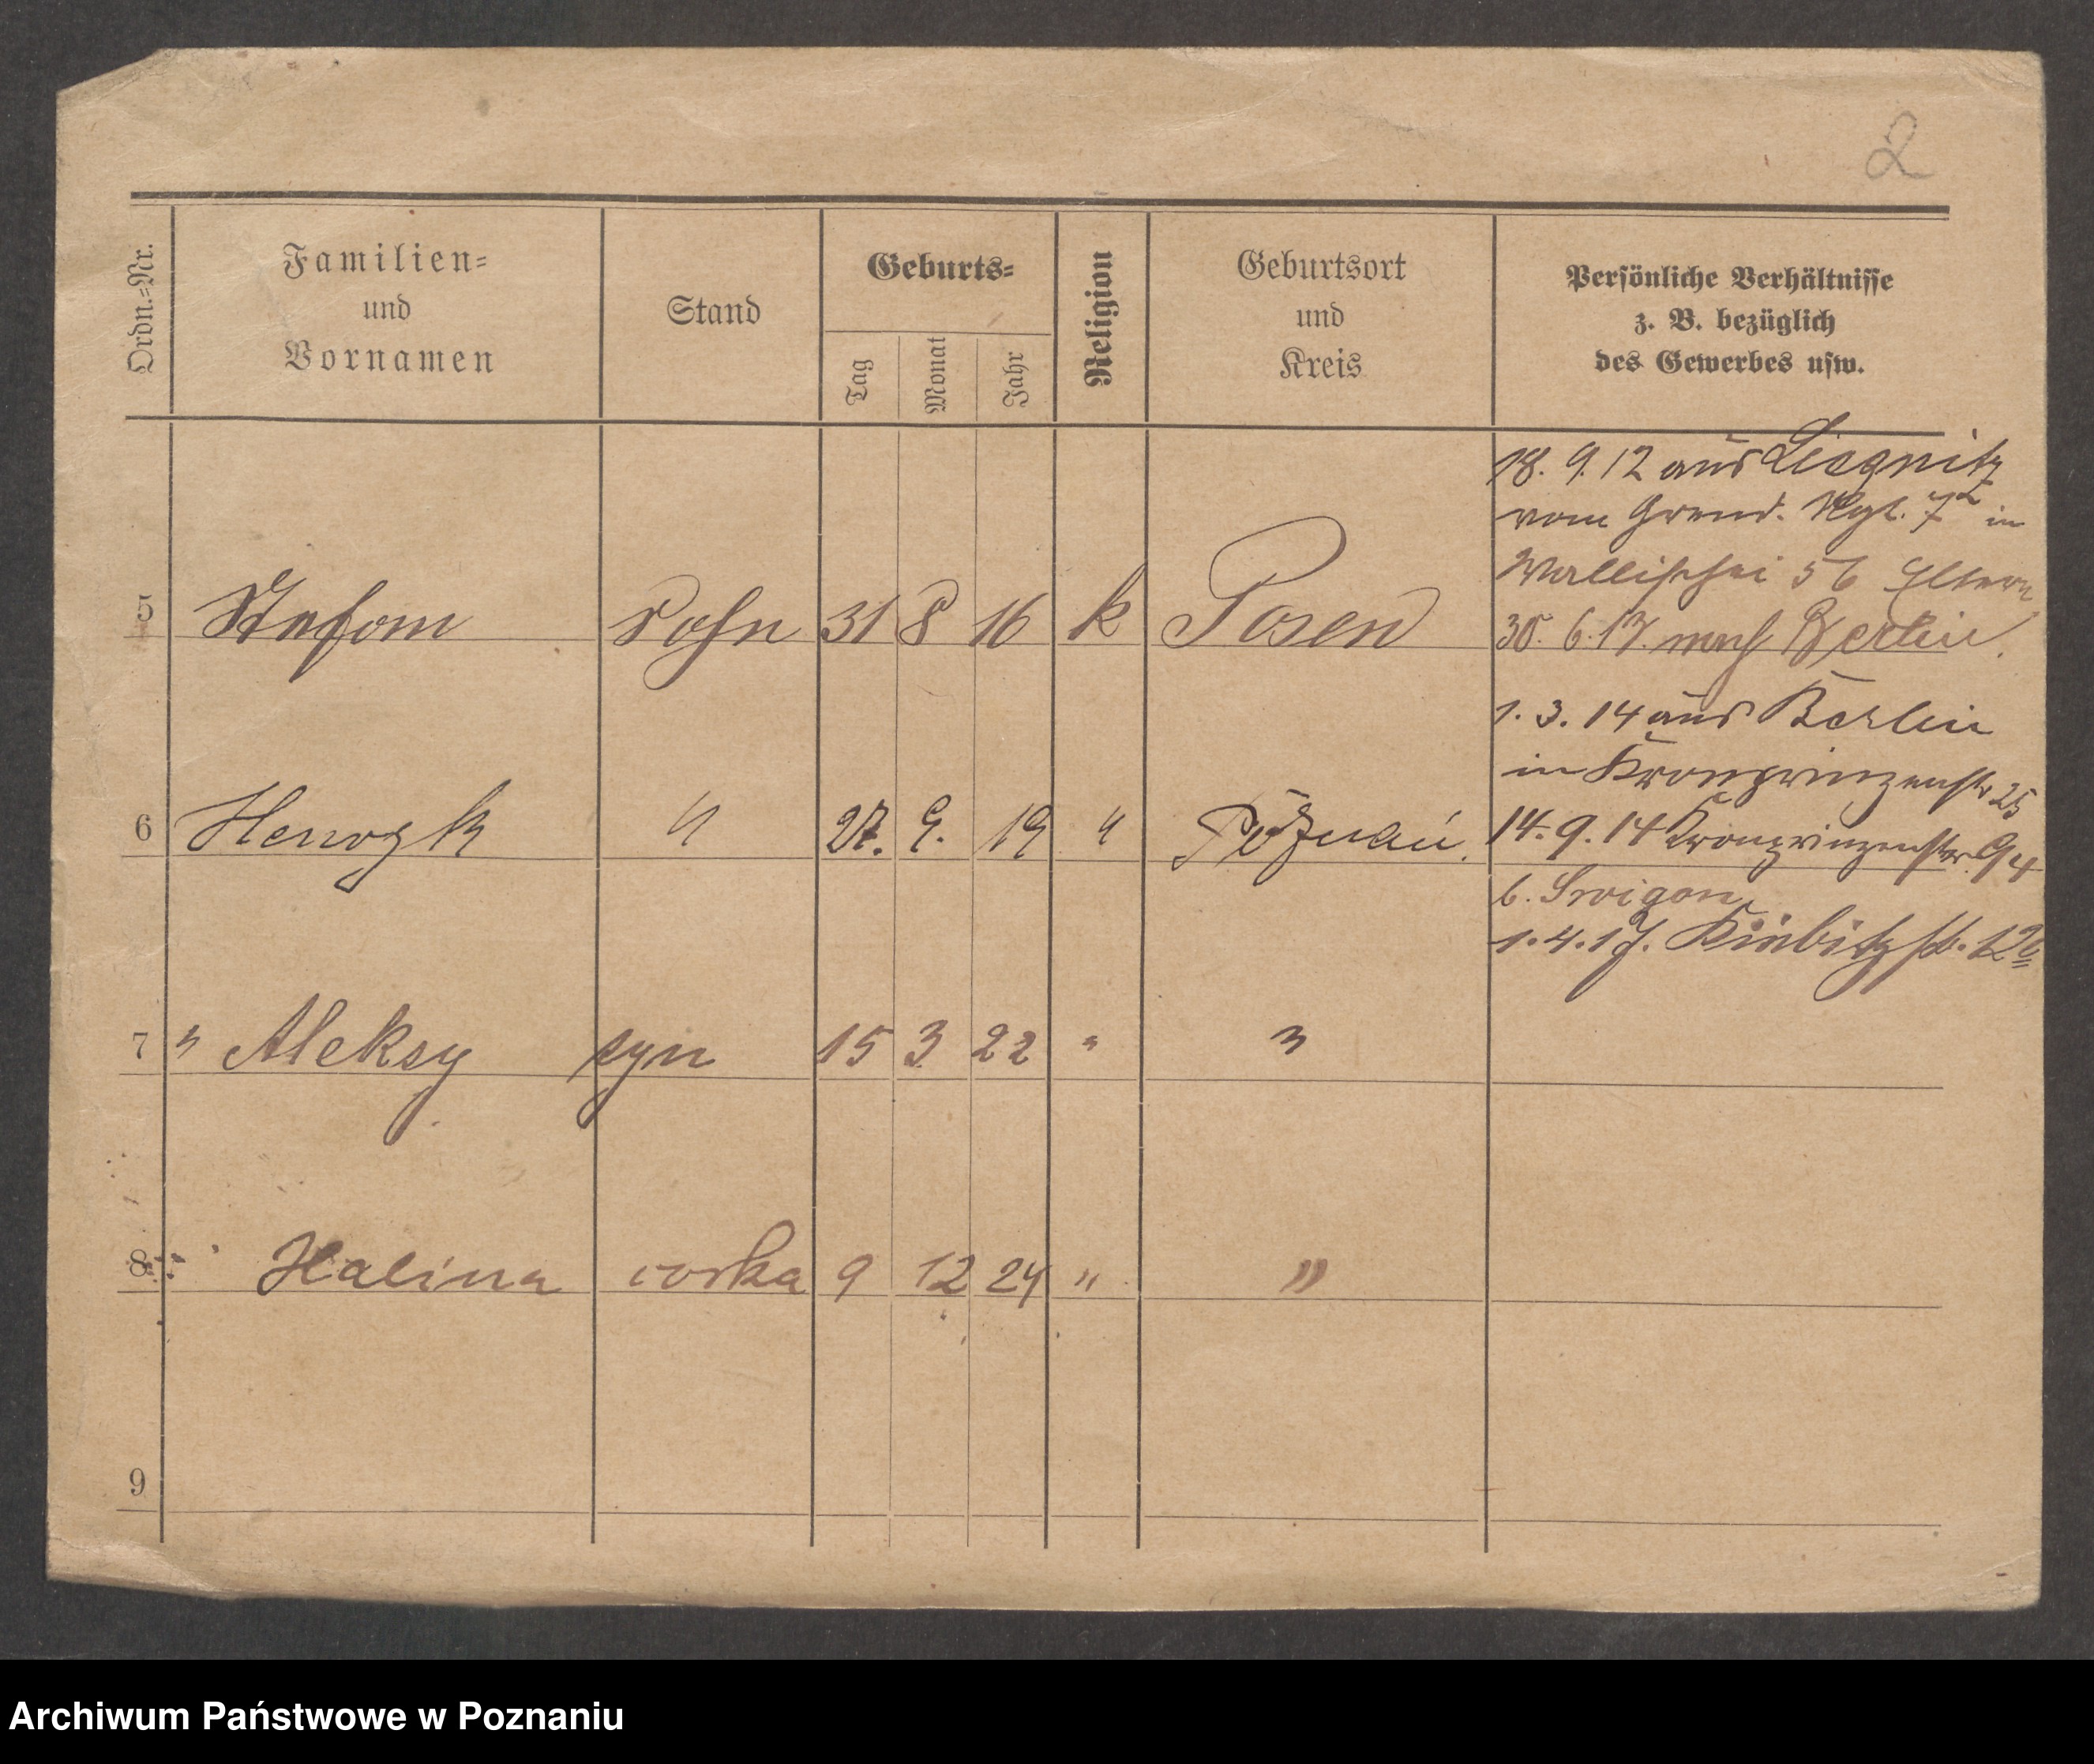 2
Ordn.=Nr.
Familien=
und
Vornamen
Stand
Geburts=
Tag
Monat
Jahr
Religion
Geburtsort
und
Kreis
Persönliche Verhältnisse
z. B. bezüglich
des Gewerbes usw.
18. 9. 12 aus Liegnitz
vom Grend. Rgt. 7 in
Wallischei 56 Eltern
5 Stefan Sohn 31 8 16 k Posen 30. 6. 17. nach Berlin.
1. 3. 14 aus Berlin
in Kronprinzenstr 25
6 Henryk " 27. 9. 19 " Poznań. 14. 9. 14 Kronprinzenstr. 94
b.
1. 4. 17.
7 " Aleksy syn 15 3 22 " "
8 " Halina corka 9 12 24 " "
9
Archiwum Państwowe w Poznaniu